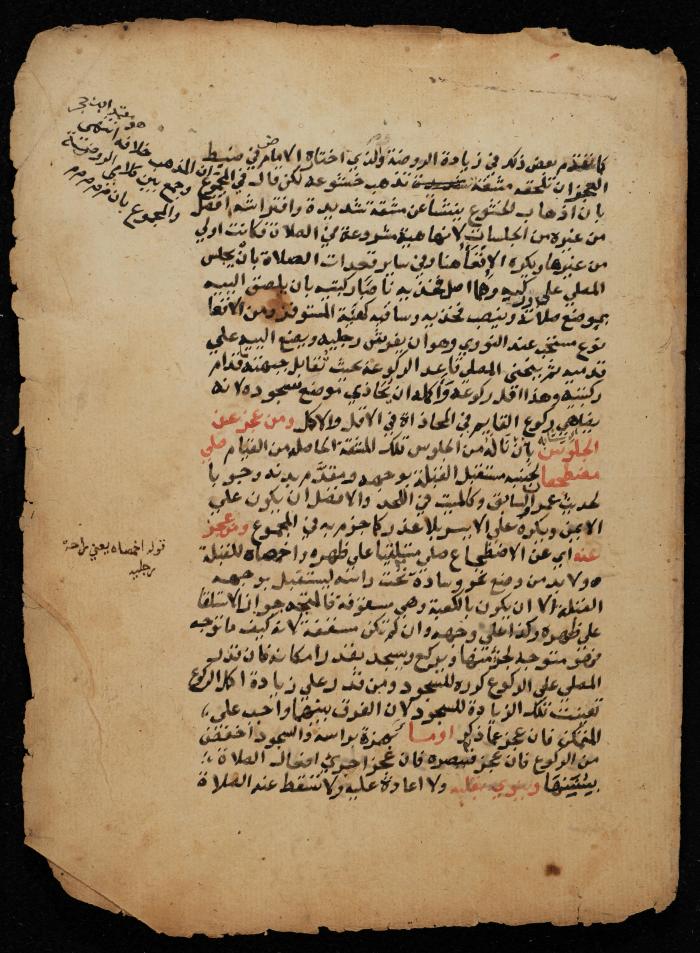 كما تقدم بعض ذلك في زيادة الروضة والذي اختاره الامام في ضبط
العجز ان تلحقه مشقة تذهب خشوعه لكن قال في المجموع ان المذهب خلافه انتهى
وجمع بين كلامي الروضة
والمجموع بان
بان اذهاب الخشوع ينشأ عن مشقة شديدة وافتراشه افضل
من غيره من الجلسات لانها هيئة مشروعة في الصلاة فكانت اولي
من غيرها ويكره الاقعا هنا وفي ساير قعدات الصلاة بان يجلس
المصلي على وركيه وهما اصل فخذيه ناصبا ركبتيه بان يلصق الييه
بموضع صلاته وينصب فخذيه وساقيه كهيئة المستوفز ومن الاقعا
نوع مستحب عند النووي وهو ان يفرش رجليه ويضع الييه علي
قدميه ثم ينحني المصلي قاعدا لركوعه بحيث تقابل جبهته قدام
ركبتيه وهذا اقل ركوعه واكمله ان تحاذي موضع سجوده لانه
يضاهي ركوع القايم في المحاذاة في الاقل والاكمل ومن عجز عن
الجلوس بان ناله من الجلوس تلك المشقة الحاصلة من القيام صلي
مضطجعا لجنبه مستقبل القبلة بوجهه ومقدم بدنه وجوبا
لحديث عمران السابق وكالميت في اللحد والافضل ان يكون علي
الايمن ويكره علي الايسر بلا عذر كما جزم به في المجموع ومن عجز
عنه اي عن الاضطجاع صلي مستلقيا علي ظهره واخمصاه للقبلة
ولا بد من وضع نحو وسادة تحت راسه ليستقبل بوجهه
القبلة الا ان يكون بالكعبة وهي مسقوفة فالمتجه جواز الاستلقا
علي ظهره وكذا علي وجهه وان لم تكن مسقفة لانه كيف ما توجه
فهو متوجه لجزء منها ويركع ويسجد بقدر امكانه فان قدر
المصلي علي الركوع كرره للسجود ومن قدر علي زيادة اكمل الركوع
تعينت تلك الزيادة للسجود لان الفرق بينهما واجب علي
المتمكن فان عجز عما ذكر اومأ براسه والسجود اخفض
من الركوع فان عجز فببصره فان عجز اجري افعال الصلاة
بسننها وينوي بقلبه ولا اعادة عليه ولا تسقط عنه الصلاة
قوله اخمصاه يعني راحة
رجليه